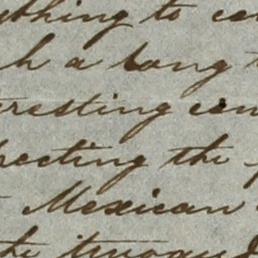 ything to co
h a long
teresting con
pecting the
Mexican
the